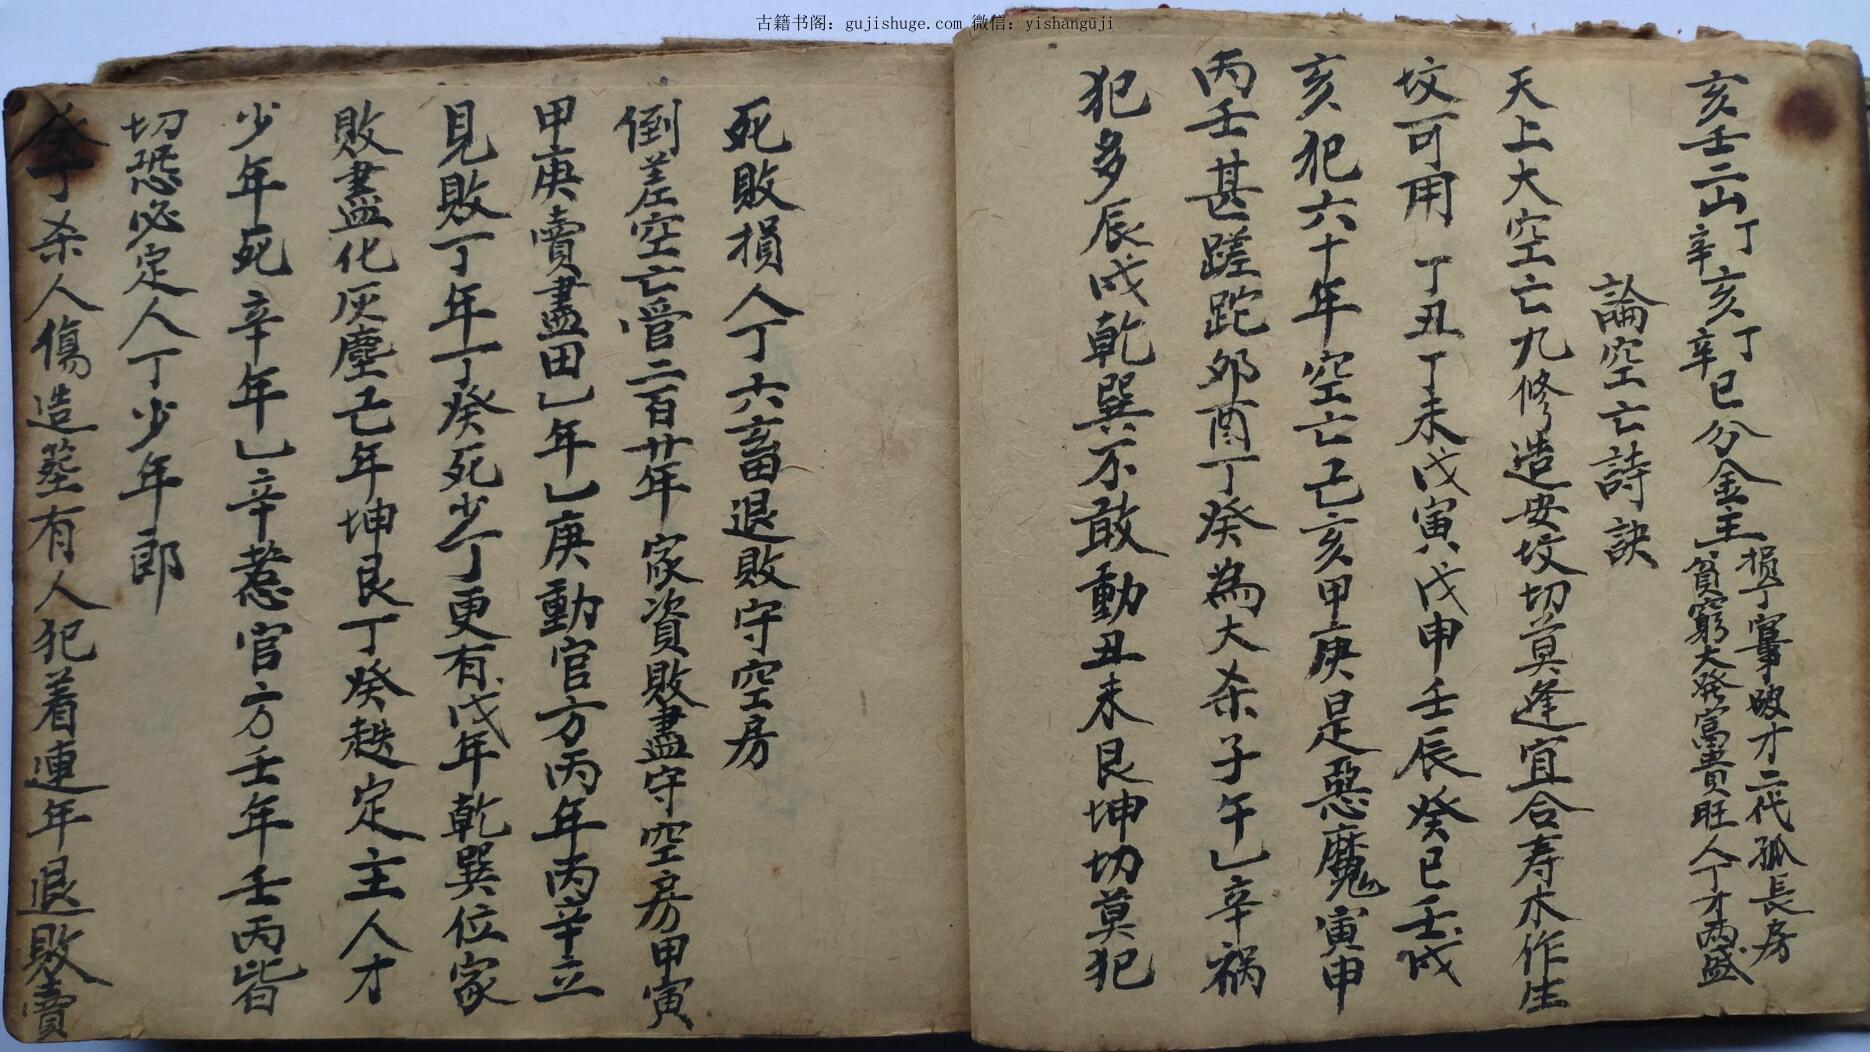 古籍书阁：gujishuge.com 微信：yishanguji
亥壬二山丁辛亥丁辛巳分金主損丁官事破才二代孤長房貧窮大發富貴旺人丁才兩盛
論空亡詩訣
天上大空亡九修造安坟切莫逢宜合寿木作生
坟可用丁丑丁未戊寅戊申壬辰癸巳壬戌
亥犯六十年空亡己亥甲庚是惡魔寅申
丙壬甚蹉跎卯酉丁癸為大杀子午乙辛祸
犯多辰戌乾巽不敢動丑未艮坤切莫犯
死敗損人丁六畜退敗守空房
倒差空亡管二百廿年家資敗盡守空房甲寅
甲庚賣盡田乙年乙庚動官方丙年丙辛立
見敗丁年丁癸死少丁更有戊年乾巽位家
敗盡化灰塵己年坤艮丁癸趂定主人才
少年死辛年乙辛惹官方壬年壬丙皆
切恐必定人丁少年郎
癸丁杀人傷造塟有人犯着連年退敗賣